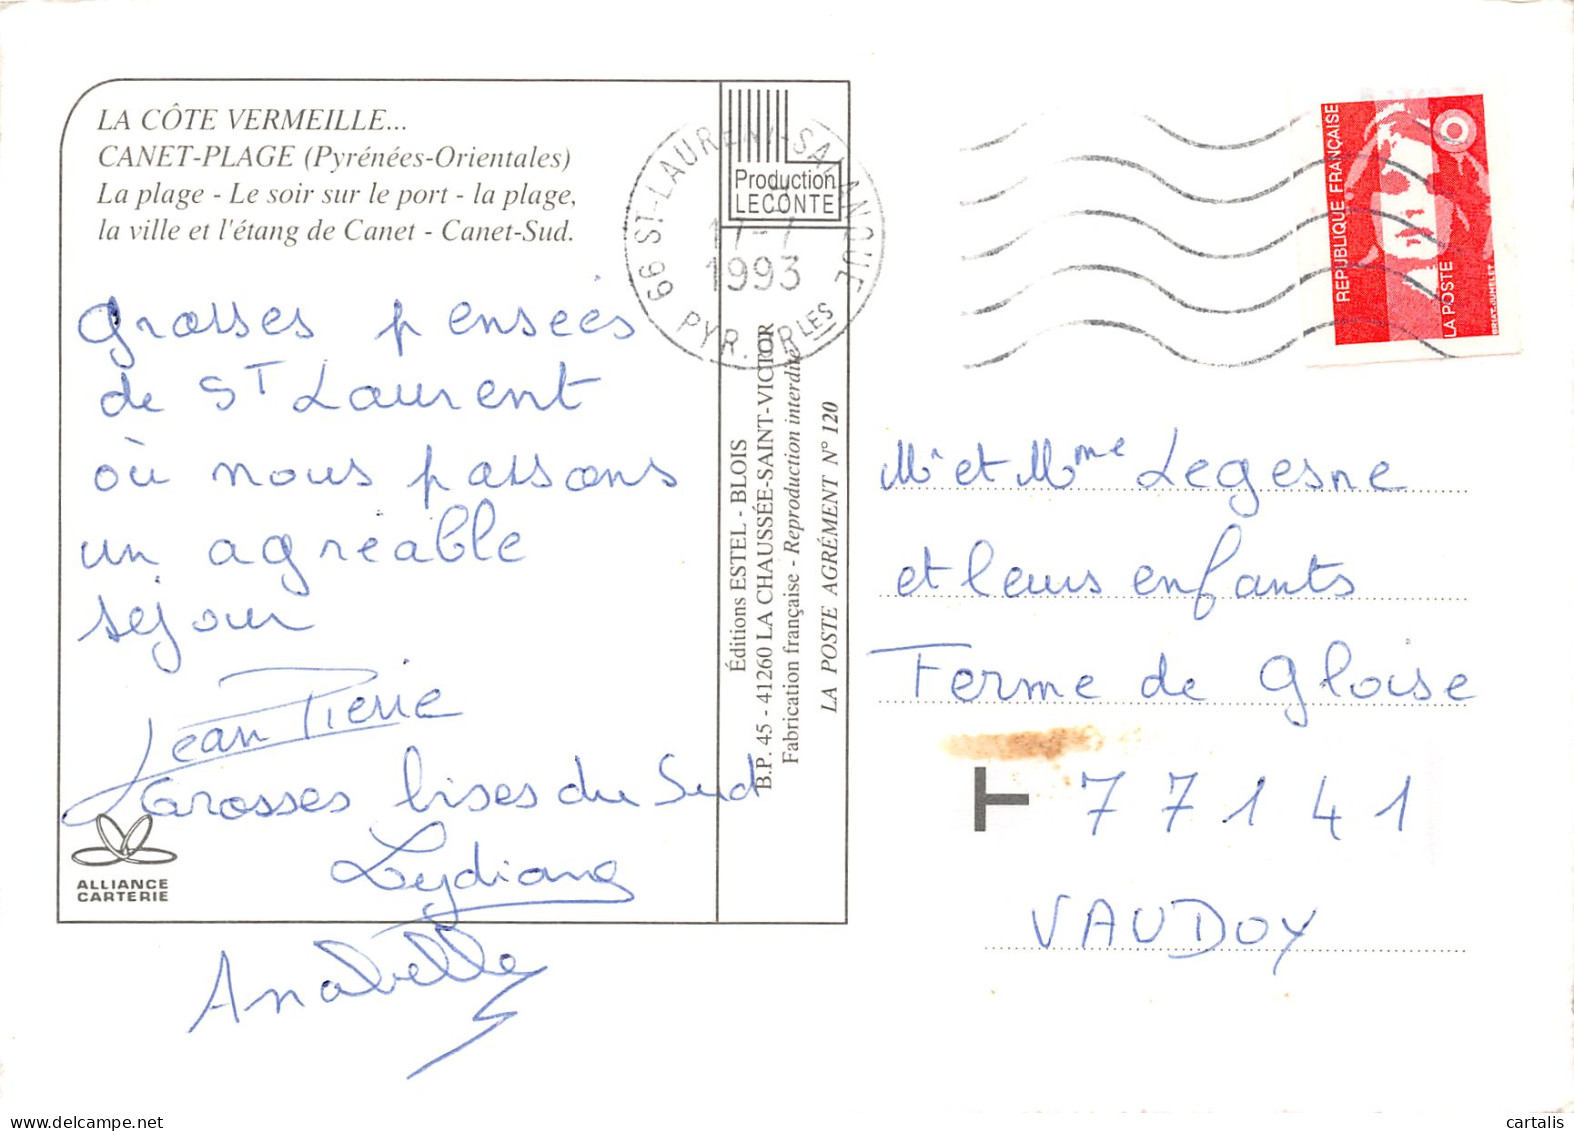 LA CÔTE VERMEILLE...
CANET-PLAGE (Pyrénées-Orientales)
La plage - Le soir sur le port - la plage,
la ville et l'étang de Canet - Canet-Sud.
Grosses pensées
de St Laurent
où nous passons
un agréable
séjour
Jean Pierre
Grosses bises du Sud
Lydiane
Anabelle
ALLIANCE
CARTERIE
Production
LECONTE
66 ST-LAURENT-SALANQUE
17-7
1993
PYR. ORLES
Éditions ESTEL - BLOIS
B.P. 45 - 41260 LA CHAUSSÉE-SAINT-VICTOR
Fabrication française - Reproduction interdite
LA POSTE AGRÉMENT N° 120
REPUBLIQUE FRANÇAISE
LA POSTE
BRIAT-JUMELET
Mr et Mme Legesne
et leurs enfants
Ferme de Gloise
T 77141
VAUDOY
cartalis
www.delcampe.net